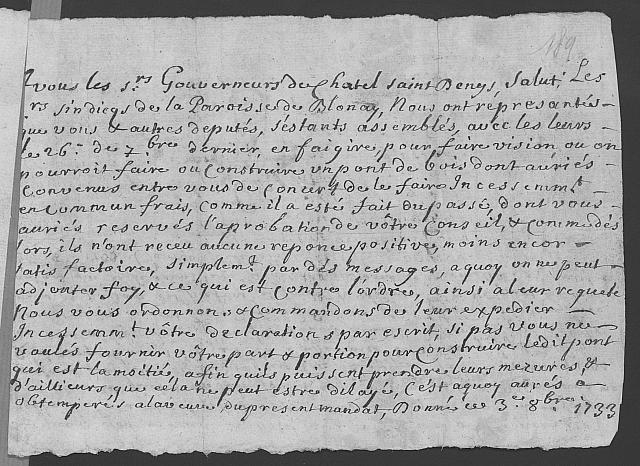 189
A vous les s.rs Gouverneurs de Chatel saint Denys, Salut; Les
s.rs sindicqs de la Paroisse de Blonay, Nous ont represantés
que vous & autres deputés, s'estants assemblés, avec les leurs
le 26.e de 7.bre dernier, en faigire, pour faire vision ou on
pourroit faire ou construire un pont de bois dont auriés
Convenus entre vous de Concert de le faire Incessemm.t
en Commun frais, Comme il a esté fait du passé, dont vous
auriés reservés l'aprobation de vôtre Conseil, & Comme dés
lors, ils n'ont receu aucune reponce positive, moins encor
satisfactoire, simplem.t par dés messages, a quoy on ne peut
adjouter foy, & ce qui est contre l'ordre, ainsi a leur requete
Nous vous ordonnons, & Commandons de leur expedier
Incessemm.t vôtre declaration par escrit, si pas vous ne
voulés fournir vôtre part & portion pour Construire ledit pont
qui est la moitié, afin qu'ils puissent prendre leurs mezures, &
d'ailleurs que cela ne peut estre dilayé, C'est a quoy aurés a
obtemperés a la veüe du present mandat, Donné ce 3.e 8.bre 1733